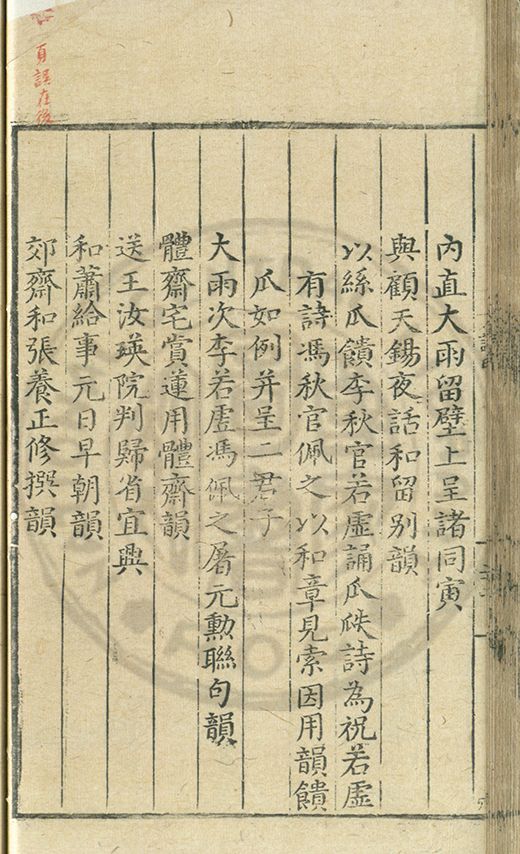 內直大雨留壁上呈諸同寅
與顧天錫夜話和留別韻
以絲瓜饋李秋官若虛誦瓜瓞詩為祝若虛
有詩馮秋官佩之以和章見索因用韻饋
瓜如例并呈二君子
大雨次李若虛馮佩之屠元勳聯句韻
體齋宅賞蓮用體齋韻
送王汝瑛院判歸省宜興
和蕭給事元日早朝韻
郊齋和張養正修撰韻
頁誤在後